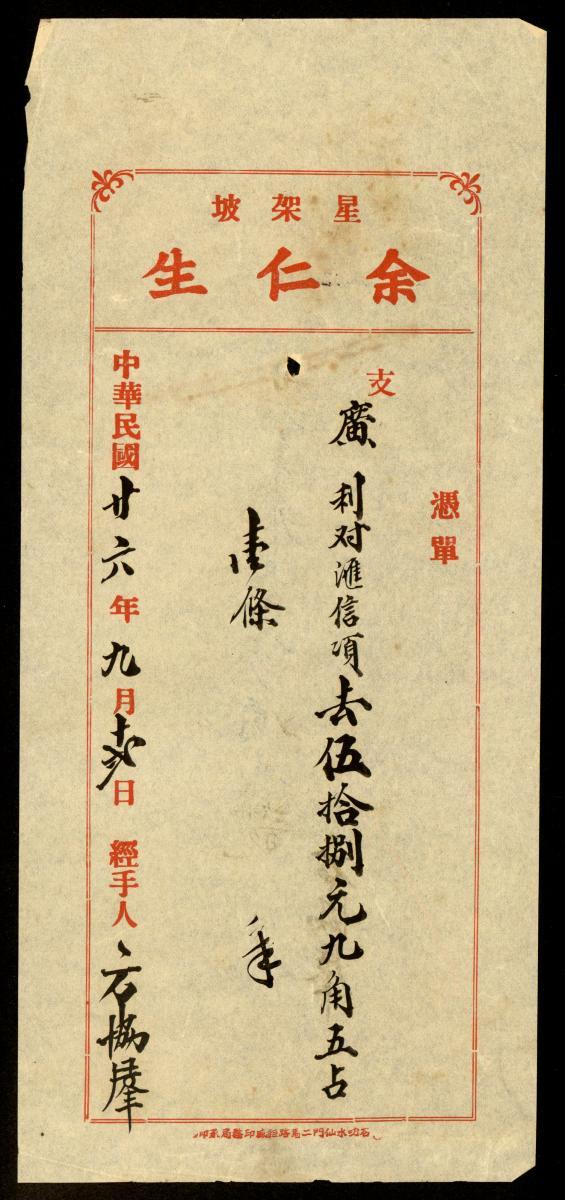 星架坡
余仁生
憑單
支
廣利对滙信項去伍拾捌元九角五占
壹條
中華民國廿六年九月日 經手人